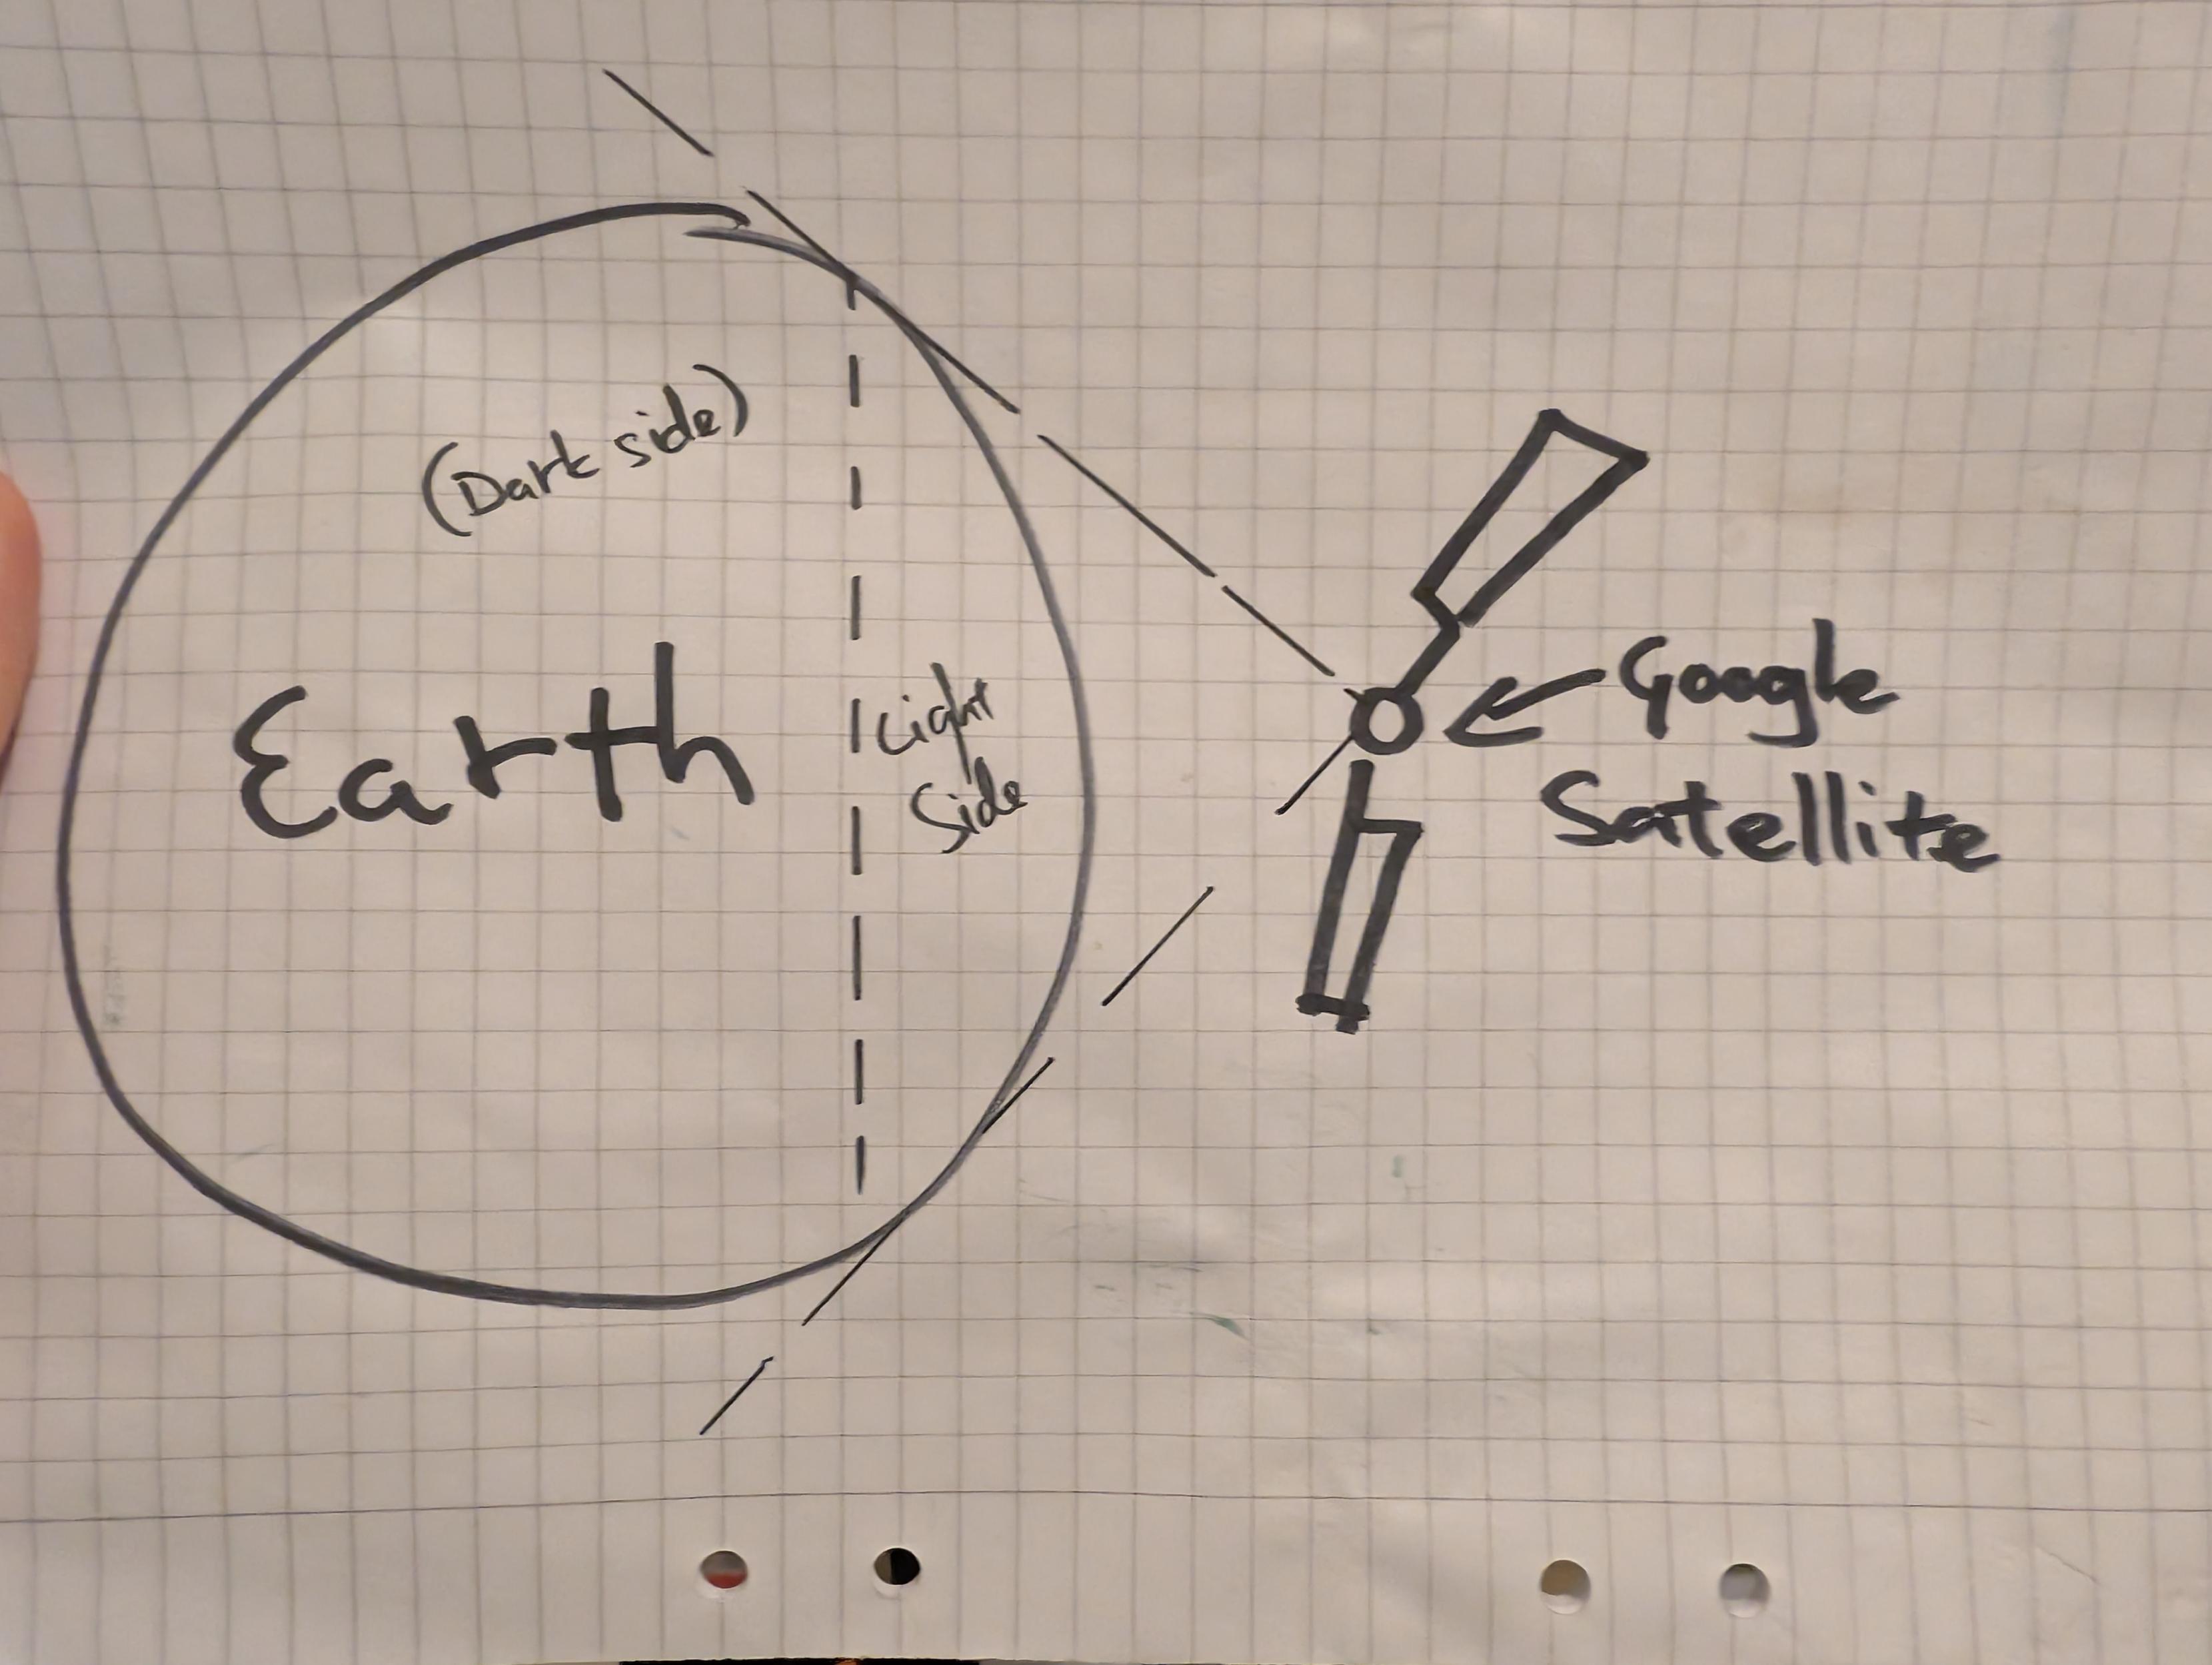 (Dark side)
Earth
Light
Side
Google
Satellite